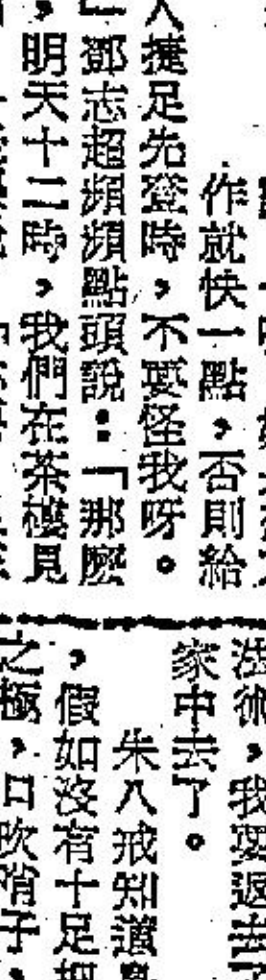 作就快一點，否則給
人捷足先登時，不要怪我呀。
」鄧志超頻頻點頭說：「那麼
，明天十二時，我們在茶樓見
法術，我要退去
家中去了。
朱八戒知道
，假如沒有十足把
之極，口吹哨子，